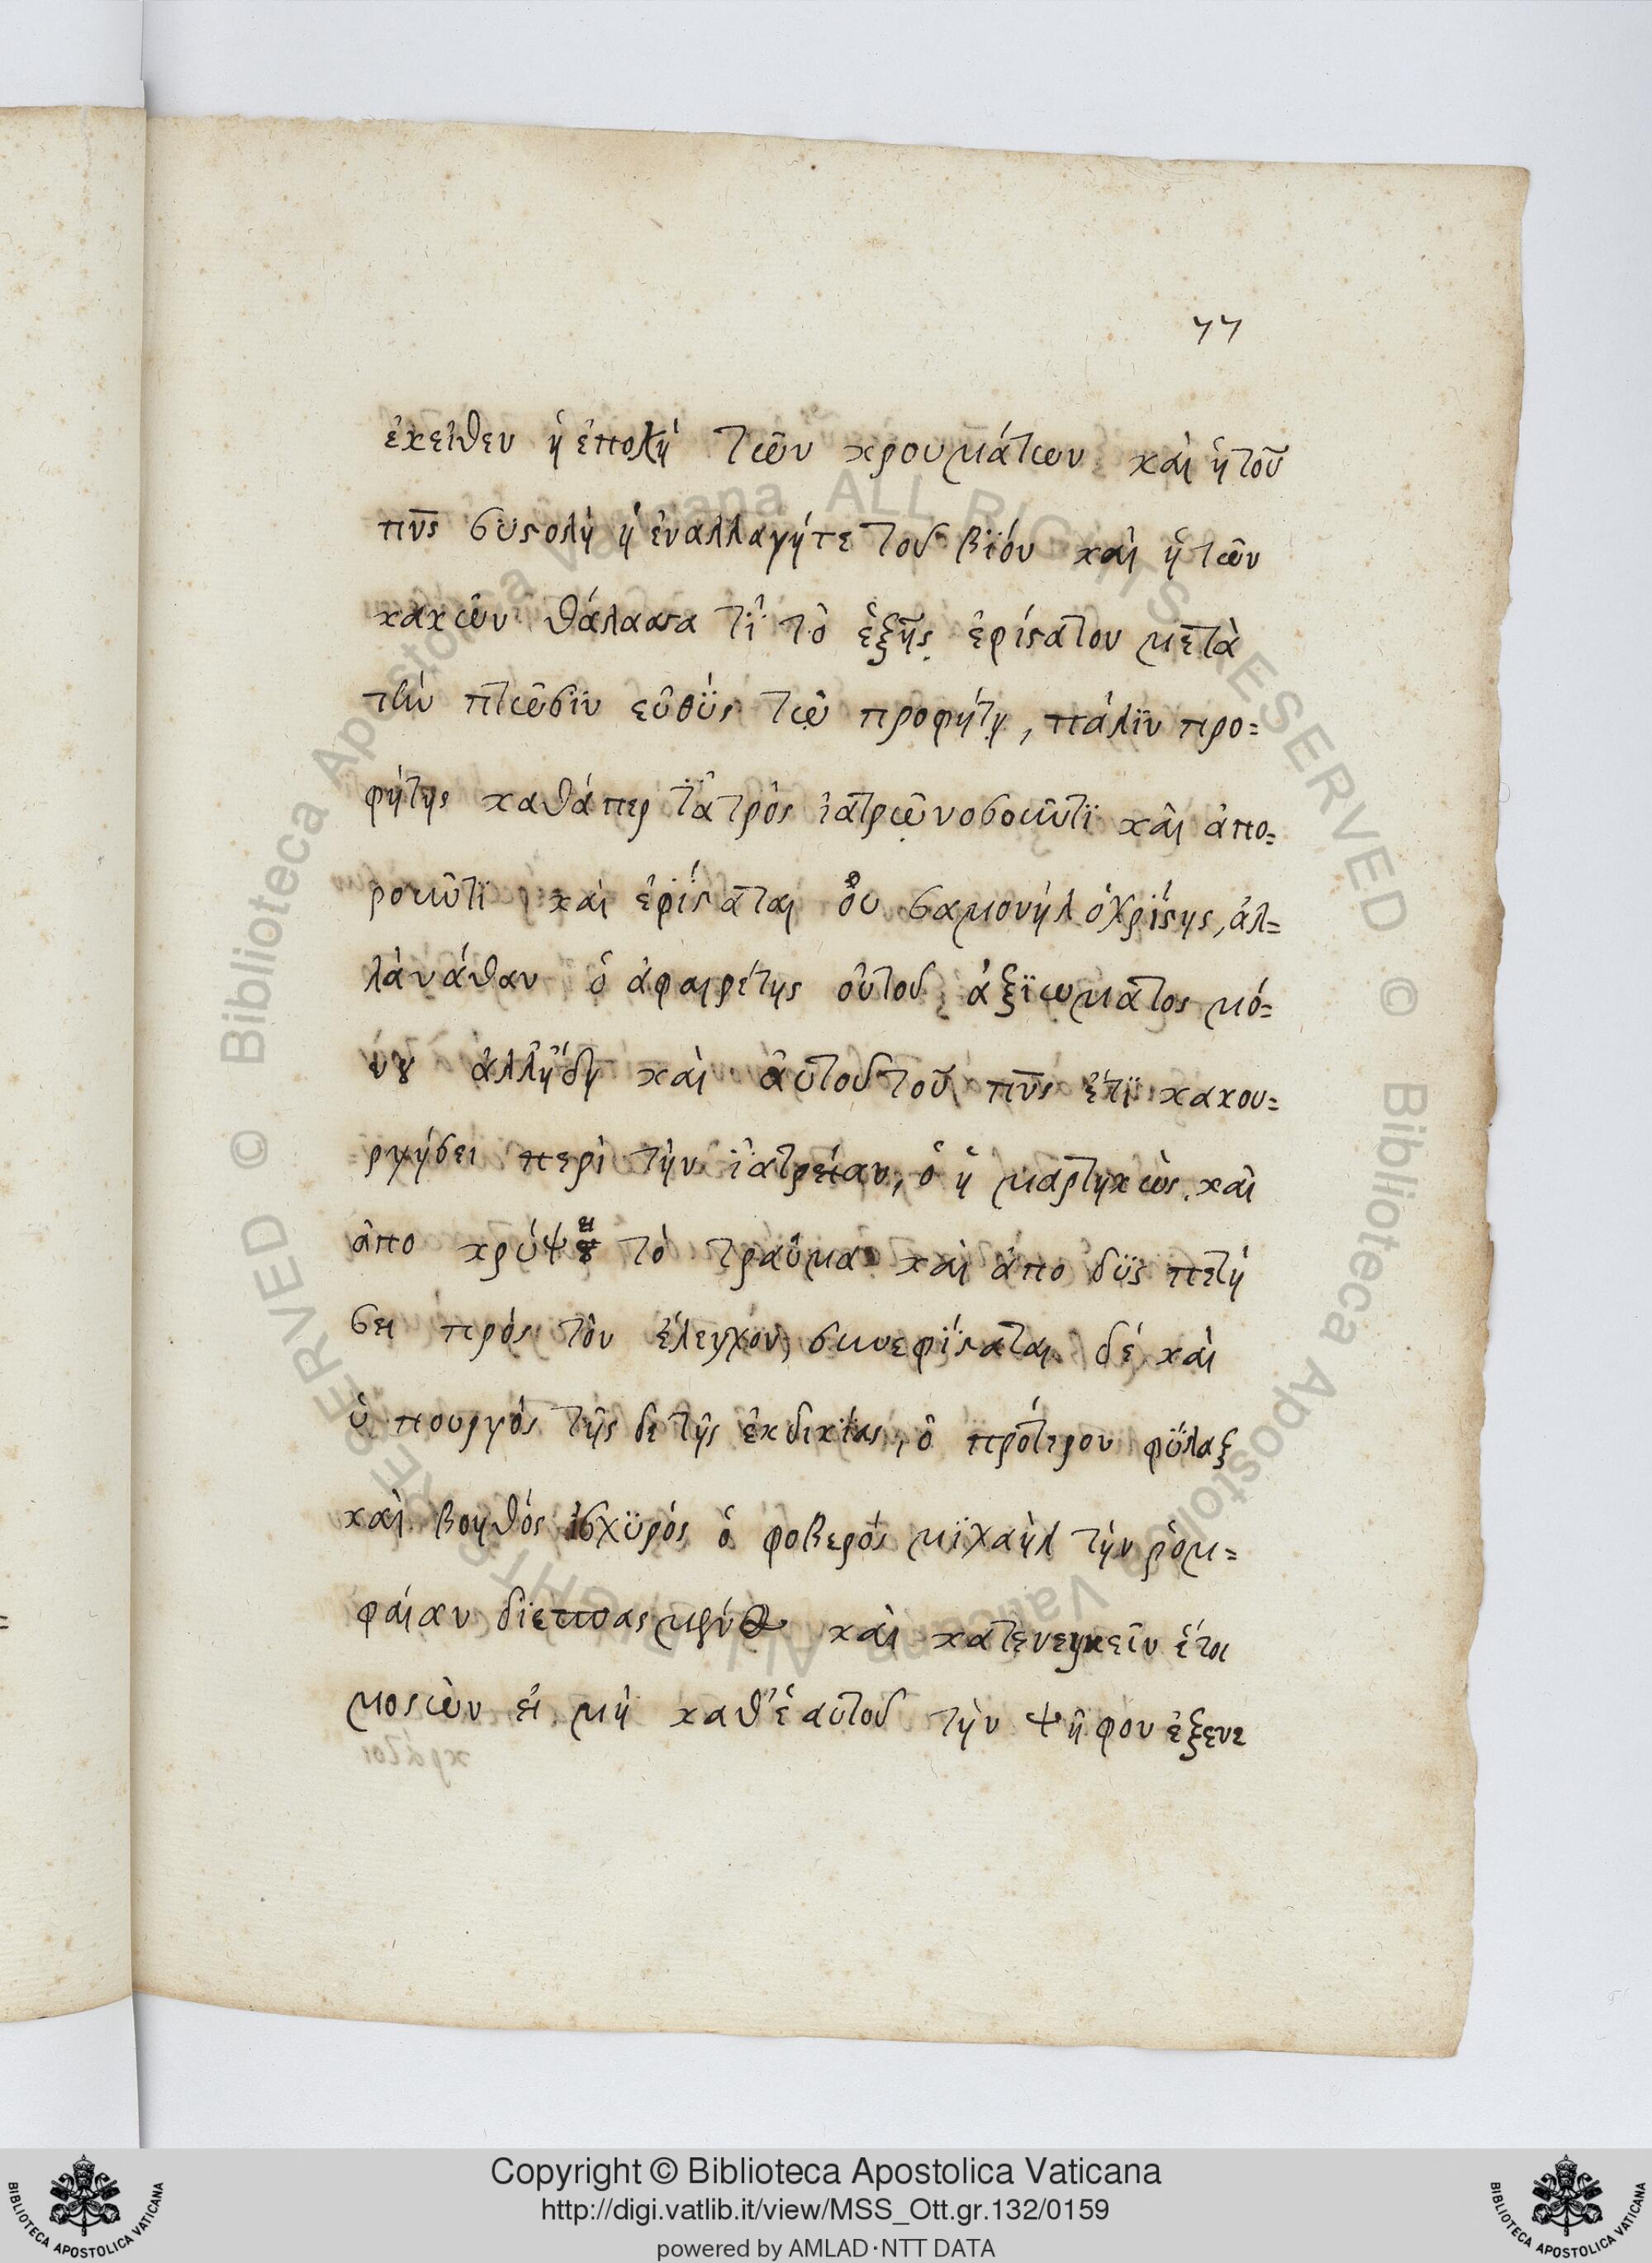 77
ἐκεῖθεν ἡ ἐπολὴ τῶν κρουμάτων καὶ ἡ τοῦ
πν̅ς συςολὴ ἡ ἐναλλαγήτε τοῦ βϊόυ καὶ ἡ τῶν
κακῶν θάλασσα τί τὸ ἑξῆς ἐφίςατον μετὰ
τὴν πτῶσϊν εὐθὺς τῷ προφήτῃ, πάλϊν προ=
φήτης καθάπερ ἰατρὸς ἰατρῷ νοσοῦντϊ καὶ ἀπο=
ροῦντϊ καὶ ἐφίςαται οὐ σαμουὴλ ὁ χρίςης, ἀλ=
λὰ νάθαν ὁ ἀφαιρέτης οὐτοῦ ἀξϊώματος μό=
νου ἀλλ' ἤδη καὶ αὐτοῦ τοῦ πν̅ς ἔτϊ κακου=
ργήσει περὶ τὴν ἰατρείαν, ὁ ἡμαρτηκὼς καὶ
ἀπο κρύψει τὸ τραῦμα καὶ ἀπο δϋς πετή
σει πρὸς τὸν ἔλεγχον, συνεφίςαται δὲ καὶ
ὑπουργὸς τῆς δε τῆς ἐκδικίας, ὁ πρότερον φύλαξ
καὶ βοηθὸς ἰσχϋρὸς ὁ φοβερὸς μϊχαὴλ τὴν ῥομ=
φαίαν καὶ κατενεγκεῖν ἕτοι
μος ὢν εἰ μὴ καθ' ἑαυτοῦ τὴν ψῆφον ἐξενε
Copyright © Biblioteca Apostolica Vaticana
http://digi.vatlib.it/view/MSS_Ott.gr.132/0159
powered by AMLAD·NTT DATA
BIBLIOTECA APOSTOLICA VATICANA
BIBLIOTECA APOSTOLICA VATICANA